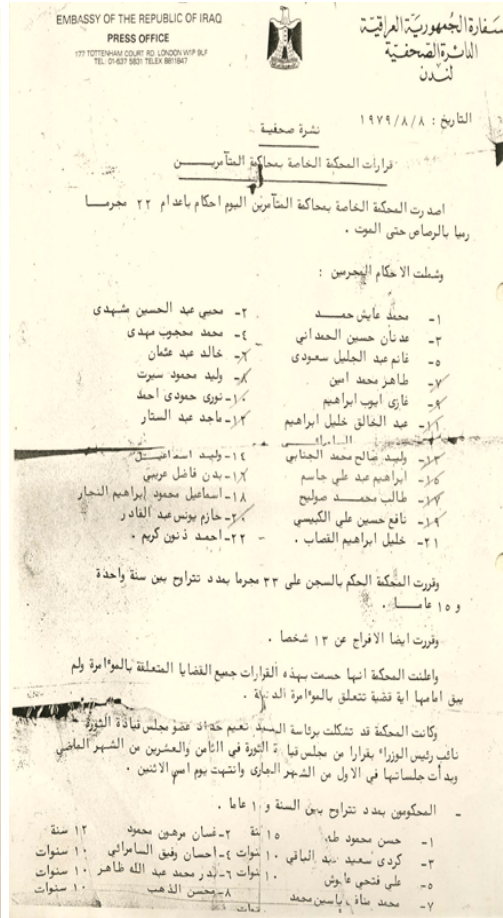 EMBASSY OF THE REPUBLIC OF IRAQ
PRESS OFFICE
177 TOTTENHAM COURT RD. LONDON W1P 9LF
TEL: 01-637 5831 TELEX 8811847
سفارة الجمهورية العراقية
الدائرة الصحفية
لندن
التاريخ : ١٩٧٩/٨/٨
نشرة صحفية
قرارات المحكمة الخاصة بمحاكمة المتآمرين
اصدرت المحكمة الخاصة بمحاكمة المتآمرين اليوم احكام باعدام ٢٢ مجرما
رميا بالرصاص حتى الموت .
وشملت الاحكام المجرمين :
١- محمد عايش حمد ٢- محيي عبد الحسين مشهدى
٣- عدنان حسين الحمداني ٤- محمد محجوب مهدى
٥- غانم عبد الجليل سعودى ٦- خالد عبد عثمان
٧- طاهر محمد امين ٨- وليد محمود سيرت
٩- غازى ايوب ابراهيم ١٠- نورى حمودى احمد
١١- عبد الخالق خليل ابراهيم السامرائي ١٢- ماجد عبد الستار
١٣- وليد صالح محمد الجنابي ١٤- وليد اسماعيل
١٥- ابراهيم عبد علي جاسم ١٦- بدن فاضل عريبي
١٧- طالب محمد صوليح ١٨- اسماعيل محمود ابراهيم النجار
١٩- نافع حسين علي الكبيسي ٢٠- حازم يونس عبد القادر
٢١- خليل ابراهيم القصاب . ٢٢- احمد ذنون كريم .
وقررت المحكمة الحكم بالسجن على ٣٣ مجرما بمدد تتراوح بين سنة واحدة
و ١٥ عاما .
وقررت ايضا الافراج عن ١٣ شخصا .
واعلنت المحكمة انها حسمت بهذه القرارات جميع القضايا المتعلقة بالموءامرة ولم
يبق امامها اية قضية تتعلق بالموءامرة .
وكانت المحكمة قد تشكلت برئاسة السيد نعيم حداد عضو مجلس قيادة الثورة
نائب رئيس الوزراء بقرار من مجلس قيادة الثورة في الثامن والعشرين من الشهر الماضي
وبدأت جلساتها في الاول من الشهر الجارى وانتهت يوم امس الاثنين .
- المحكومون بمدد تتراوح بين السنة و ١٠ عاما .
١- حسن محمود طه ١٥ سنة ٢- غسان مرهون محمود ١٢ سنة
٣- كردى سعيد عبد الباقي ١٠ سنوات ٤- احسان وفيق السامرائي ١٠ سنوات
٥- علي فتحي ١٠ سنوات ٦- بدر محمد عبد الله طاهر ١٠ سنوات
٧- محمد مناف ياسين محمد ٨- محسن الذهب ١٠ سنوات